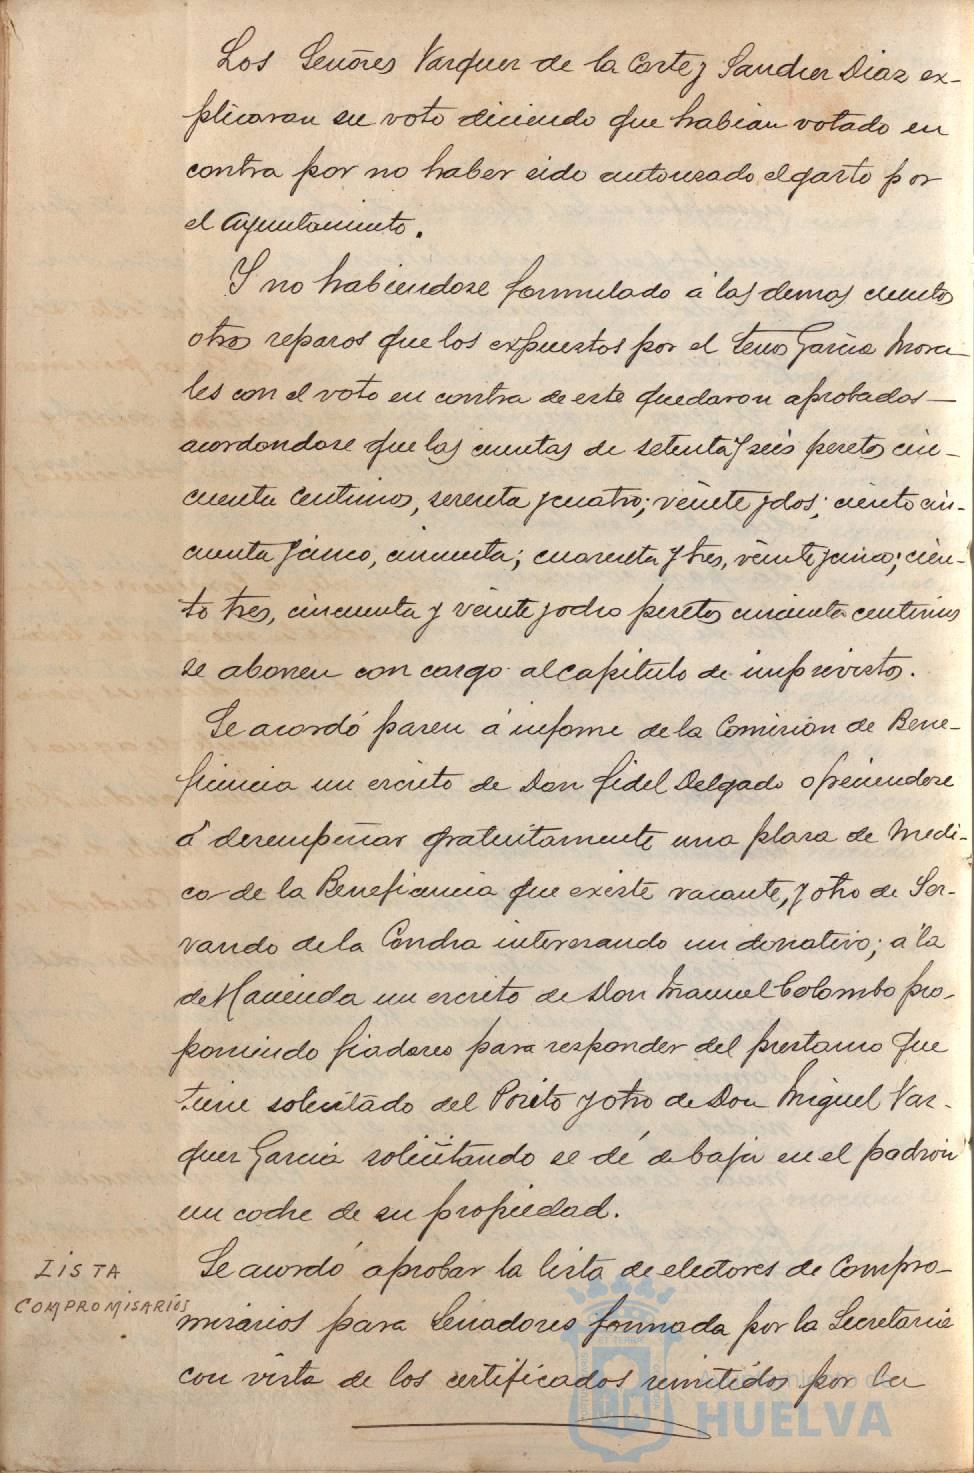 Los Señores Vazquez de la Corte y Sanchez Diaz ex-
plicaron su voto diciendo que habian votado en
contra por no haber sido autorizado el gasto por
el Ayuntamiento.
Y no habiendose formulado á las demas cuentas
otros reparos que los expuestos por el Señor Garcia Mora-
les con el voto en contra de este quedaron aprobadas—
acordandose que las cuentas de setenta y seis pesetas cin-
cuenta centimos, sesenta y cuatro; veinte y dos; ciento cin-
cuenta y cinco, cincuenta; cuarenta y tres, veinte y cinco; cien-
to tres, cincuenta y veinte y ocho pesetas cincuenta centimos
se abonen con cargo al capitulo de imprevistos.
Se acordó pasen á informe de la Comision de Bene-
ficencia un escrito de Don Fidel Delgado ofreciendose
á desempeñar gratuitamente una plaza de Medi-
co de la Beneficencia que existe vacante, y otro de Ser-
vando de la Concha interesando un donativo; á la
de Hacienda un escrito de Don Manuel Colombo pro-
poniendo fiadores para responder del prestamo que
tiene solicitado del Posito y otro de Don Miguel Vaz-
quez Garcia solicitando se dé de baja en el padron
un coche de su propiedad.
LISTA
COMPROMISARIOS
Se acordó aprobar la lista de electores de Compro-
misarios para Senadores formada por la Secretaria
con vista de los certificados remitidos por la
HUELVA